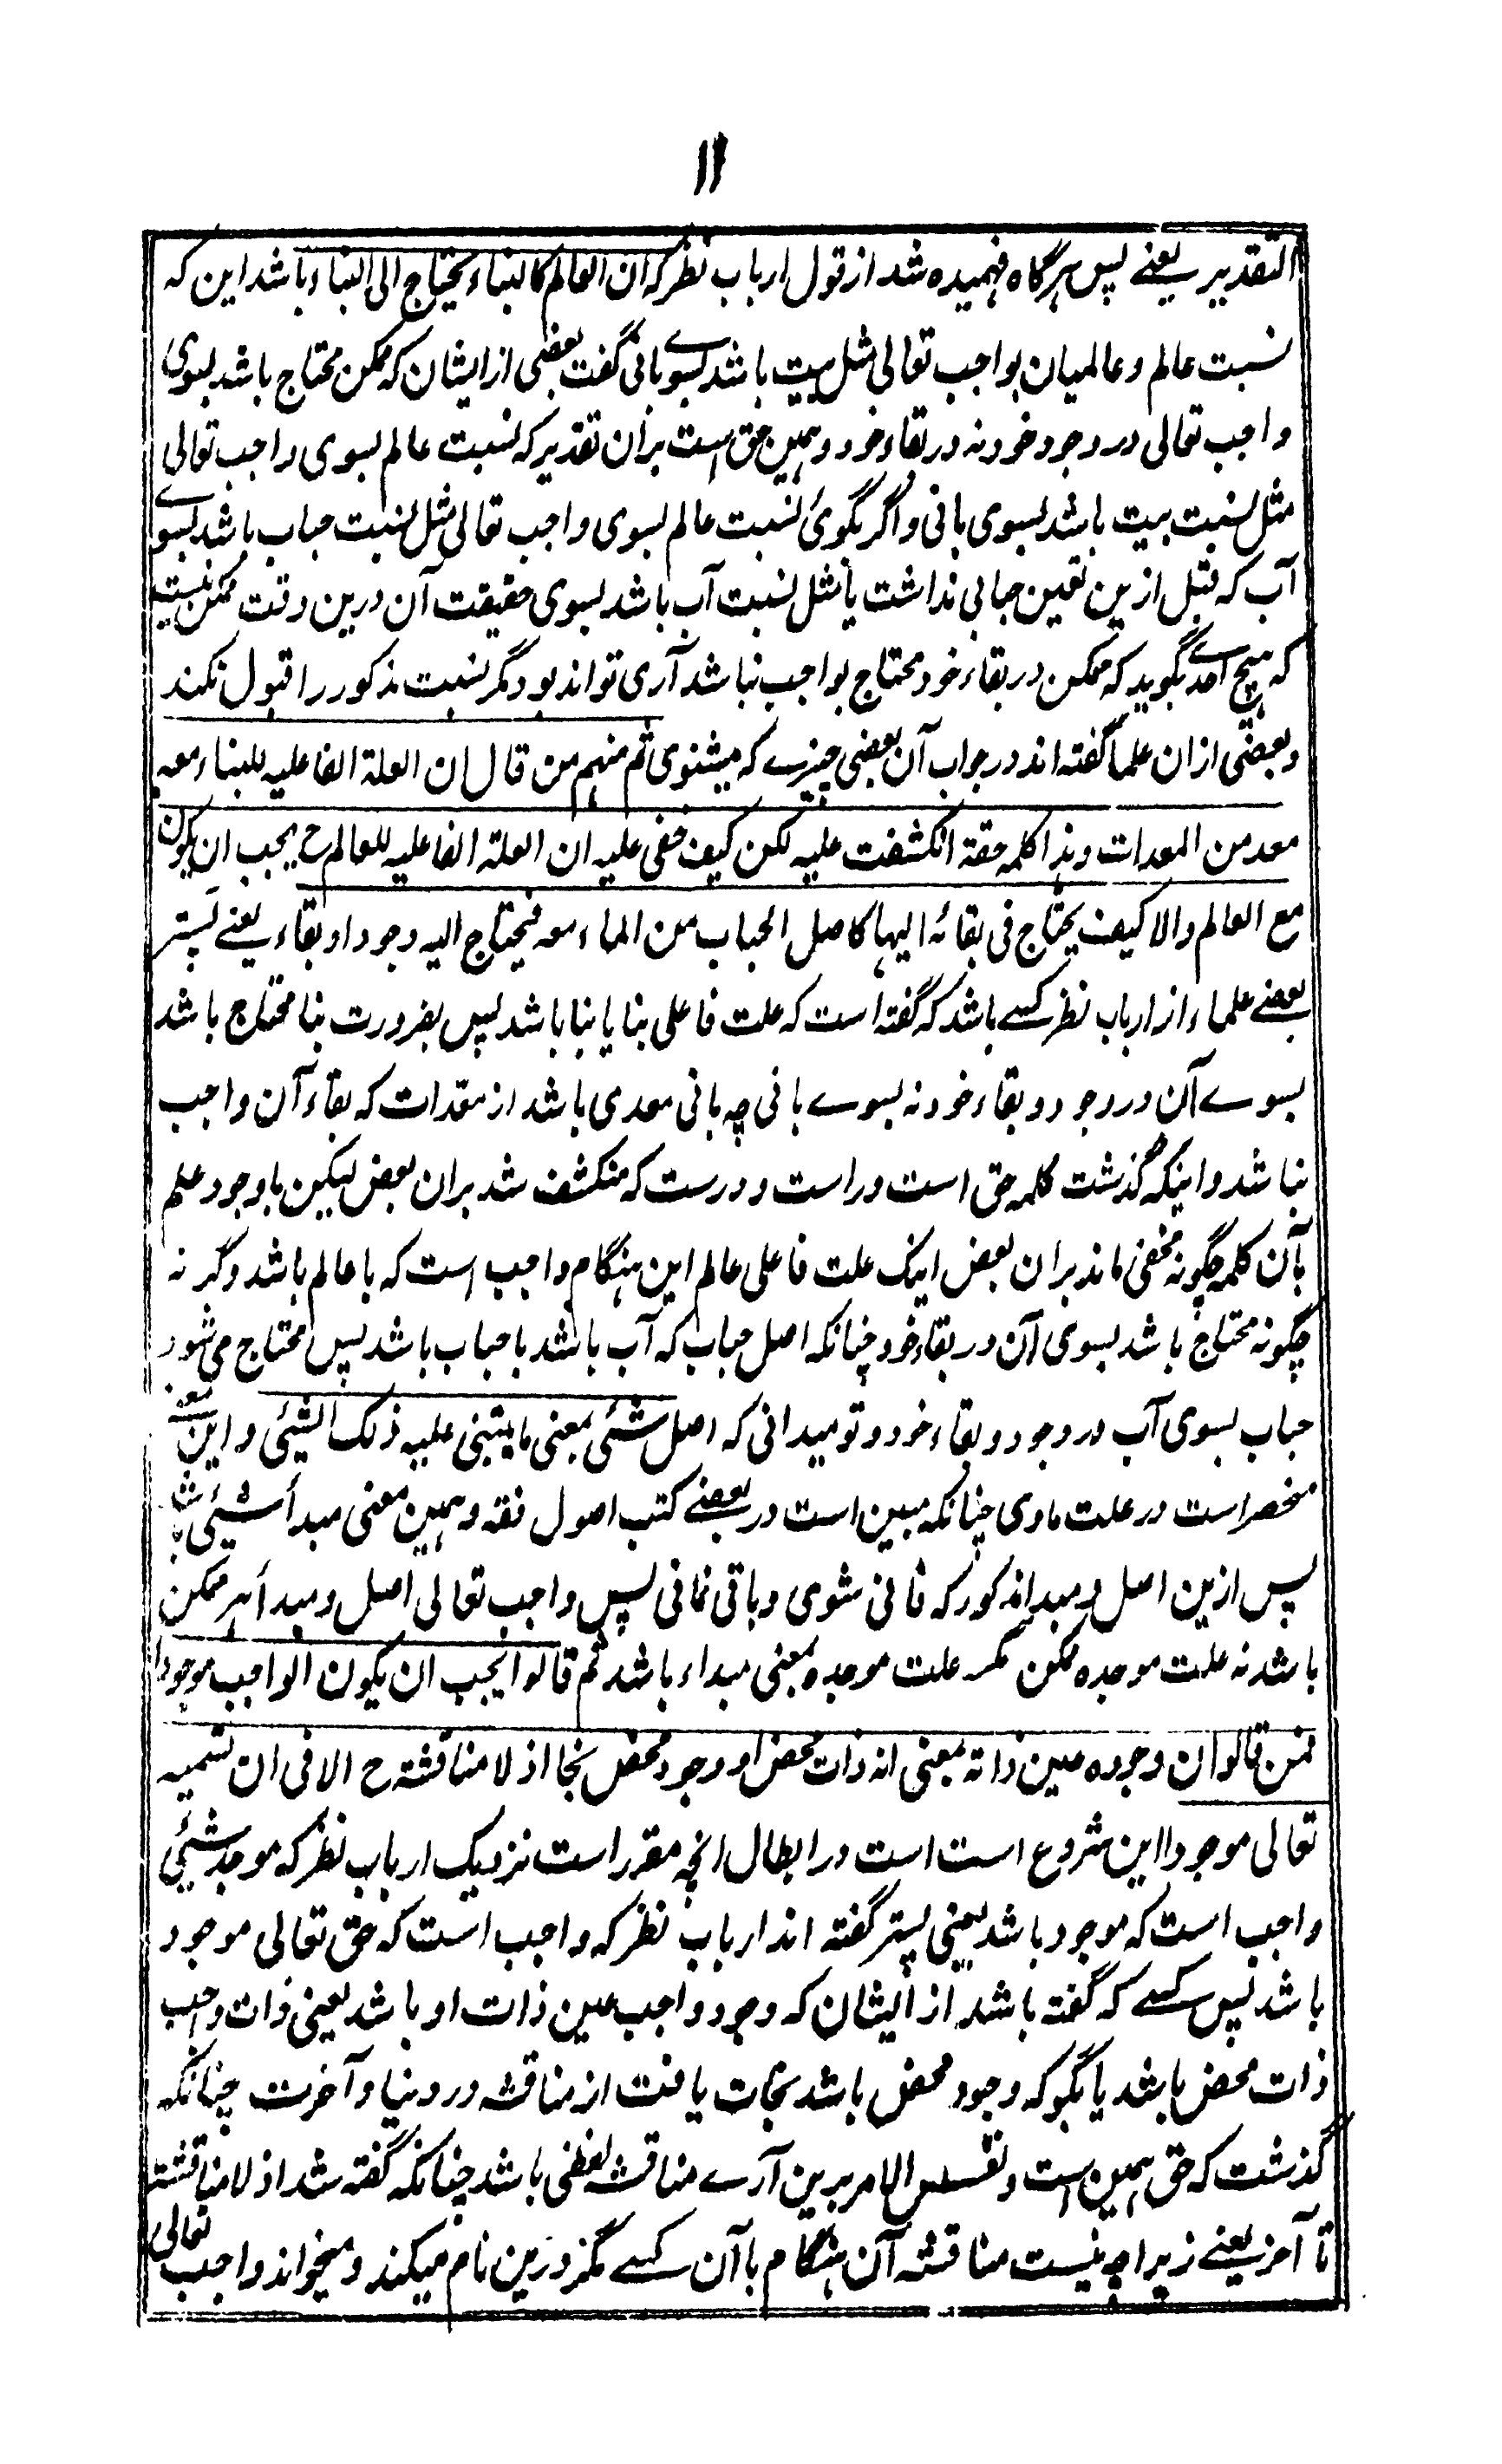 ۱۱
التقدیر یعنے پس ہرگاہ فہمیدہ شد از قول ارباب نظر کہ ان العالم کالبناء یحتاج الی البناء باشد این کہ
نسبت عالم و عالمیان بواجب تعالی مثل بیت باشد بسوے بانی گفت بعضی از ایشان کہ ممکن محتاج باشد بسوی
واجب تعالی در وجود خود نہ در بقاء خود و ہمین حق است بران تقدیر کہ نسبت عالم بسوی واجب تعالی
مثل نسبت بیت باشد بسوی بانی و اگر بگوئی نسبت عالم بسوی واجب تعالی مثل نسبت حباب باشد بسوے
آب کہ قبل ازین تعین حبابی نداشت یا مثل نسبت آب باشد بسوی حقیقت آن درین وقت ممکن نیست
کہ ہیچ احدے بگوید کہ ممکن در بقاء خود محتاج بواجب نباشد آری تواند بود گر نسبت مذکور را قبول نکند
و بعضی ازان علما گفتہ اند در جواب آن بعضی چیزے کہ میشنوی ثم منہم من قال ان العلۃ الفاعلیہ للبناء معہ
معد من المعدات و ہذا کلمہ حقۃ انکشفت علیہ لکن کیف خفی علیہ ان العلۃ الفاعلیہ للعالم ح یجب ان یکون
مع العالم والا کیف یحتاج فی بقائہ الیہا کاصل الحباب من الماء معہ فیحتاج الیہ وجودا و بقاء یعنے پستر
بعضے علماء از ارباب نظر کسے باشد کہ گفتہ است کہ علت فاعلی بنا یا بنا باشد پس بضرورت بنا محتاج باشد
بسوے آن در وجود و بقاء خود نہ بسوے بانی چہ بانی معدی باشد از معدات کہ بقاء آن واجب
نباشد و اینکہ گذشت کلمہ حق است و راست و درست کہ منکشف شد بران بعض لیکن باوجود علم
بآن کلمہ چگونہ مخفی ماند بران بعض اینک علت فاعلی عالم این ہنگام واجب است کہ با عالم باشد و گر نہ
چگونہ محتاج باشد بسوی آن در بقاء خود چنانکہ اصل حباب کہ آب باشد با حباب باشد پس محتاج می شود
حباب بسوی آب در وجود و بقاء خود و تو میدانی کہ اصل شئی بمعنی ما یبتنی علیہ ذلک الشیئی و این معنے
منحصر است در علت مادی چنانکہ مبین است در بعضے کتب اصول فقہ و ہمین معنی مبدأ شیئی باشد
پس ازین اصل و مبدا مذکور کہ فانی شوی و باقی نمانی پس واجب تعالی اصل و مبدأ ہر ممکن
باشد نہ علت موجدہ ممکن مگر علت موجدہ بمعنی مبداء باشد ثم قالوا یجب ان یکون الواجب موجودا
فمن قالوا ان وجودہ عین ذاتہ بمعنی انہ ذات محض او وجود محض نجا اذ لا مناقشتہ ح الا فی ان تسمیہ
تعالی موجودا این شروع است است در ابطال انچہ مقرر است نزدیک ارباب نظر کہ موجد شیئی
واجب است کہ موجود باشد یعنی پستر گفتہ اند ارباب نظر کہ واجب است کہ حق تعالی موجود
باشد پس کسے کہ گفتہ باشد از ایشان کہ وجود واجب عین ذات او باشد یعنی ذات واجب
ذات محض باشد یا بگو کہ وجود محض باشد نجات یافت از مناقشہ در دنیا و آخرت چنانکہ
گذشت کہ حق ہمین است و نفس الامر برین آرے مناقشہ لفظی باشد چنانکہ گفتہ شد اذ لا مناقشتہ
تا آخر یعنے زیراچہ نیست مناقشہ آن ہنگام با آن کسے مگر درین نام میکند و میخواند واجب تعالی